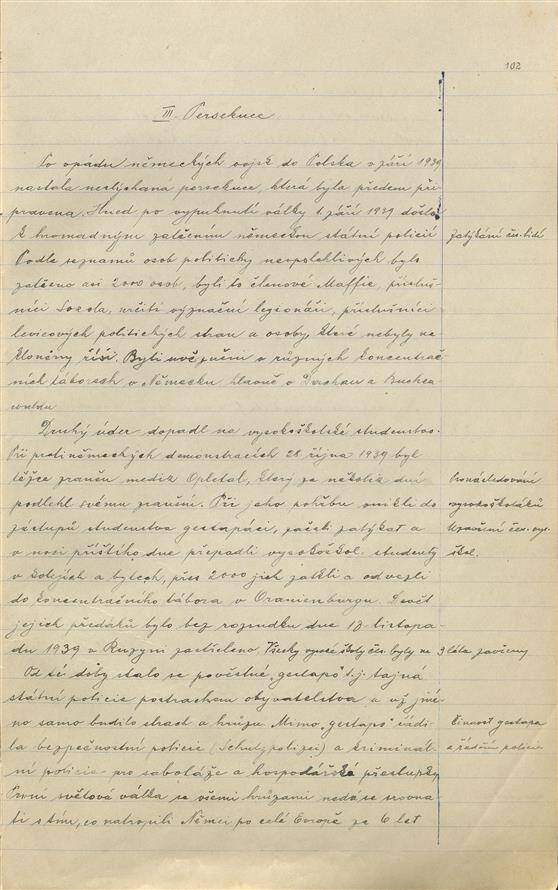 102
III. Persekuce
Po vpádu německých vojsk do Polska v září 1939
nastala neslýchaná persekuce, která byla předem při
pravena. Hned po vypuknutí války 1. září 1939 došlo
k hromadným zatčením německou státní policií
Zatýkání čes. lidí
Podle seznamů osob politicky nespolehlivých bylo
zatčeno asi 2000 osob, byli to členové Maffie, přísluš-
níci Sokola, někteří význační legionáři, příslušníci
levicových politických stran a osoby, které nebyly na
kloněny říši. Byli uvězněni v různých koncentrač-
ních táborech v Německu hlavně v Dachau a Buchen
waldu.
Druhý úder dopadl na vysokoškolské studentstvo.
Při protiněmeckých demonstracích 28. října 1939 byl
těžce raněn medik Opletal, který za několik dní
Pronásledování
podlehl svému zranění. Při jeho pohřbu vnikli do
vysokoškoláků
zástupů studentstva gestapáci, začali zatýkat a
Uzavření čes. vys.
v noci příštího dne přepadli vysokoškol. studenty
škol.
v kolejích a bytech, přes 2000 jich zatkli a odvezli
do koncentračního tábora v Oranienburgu. Devět
jejich předáků bylo bez rozsudku dne 17. listopa-
du 1939 v Ruzyni zastřeleno. Všecky vysoké školy čes. byly na 3 léta zavřeny
Od té doby stalo se pověstné "gestapo" t.j. tajná
státní policie postrachem obyvatelstva a už jmé-
no samo budilo strach a hrůzu. Mimo "gestapo" řádi-
Činnost gestapa
la bezpečnostní policie (Schutzpolizei) a kriminál-
a řádění policie
ní policie pro sabotáže a hospodářské přestupky
První světová válka se všemi hrůzami nedá se srovna-
ti s tím, co natropili Němci po celé Evropě za 6 let